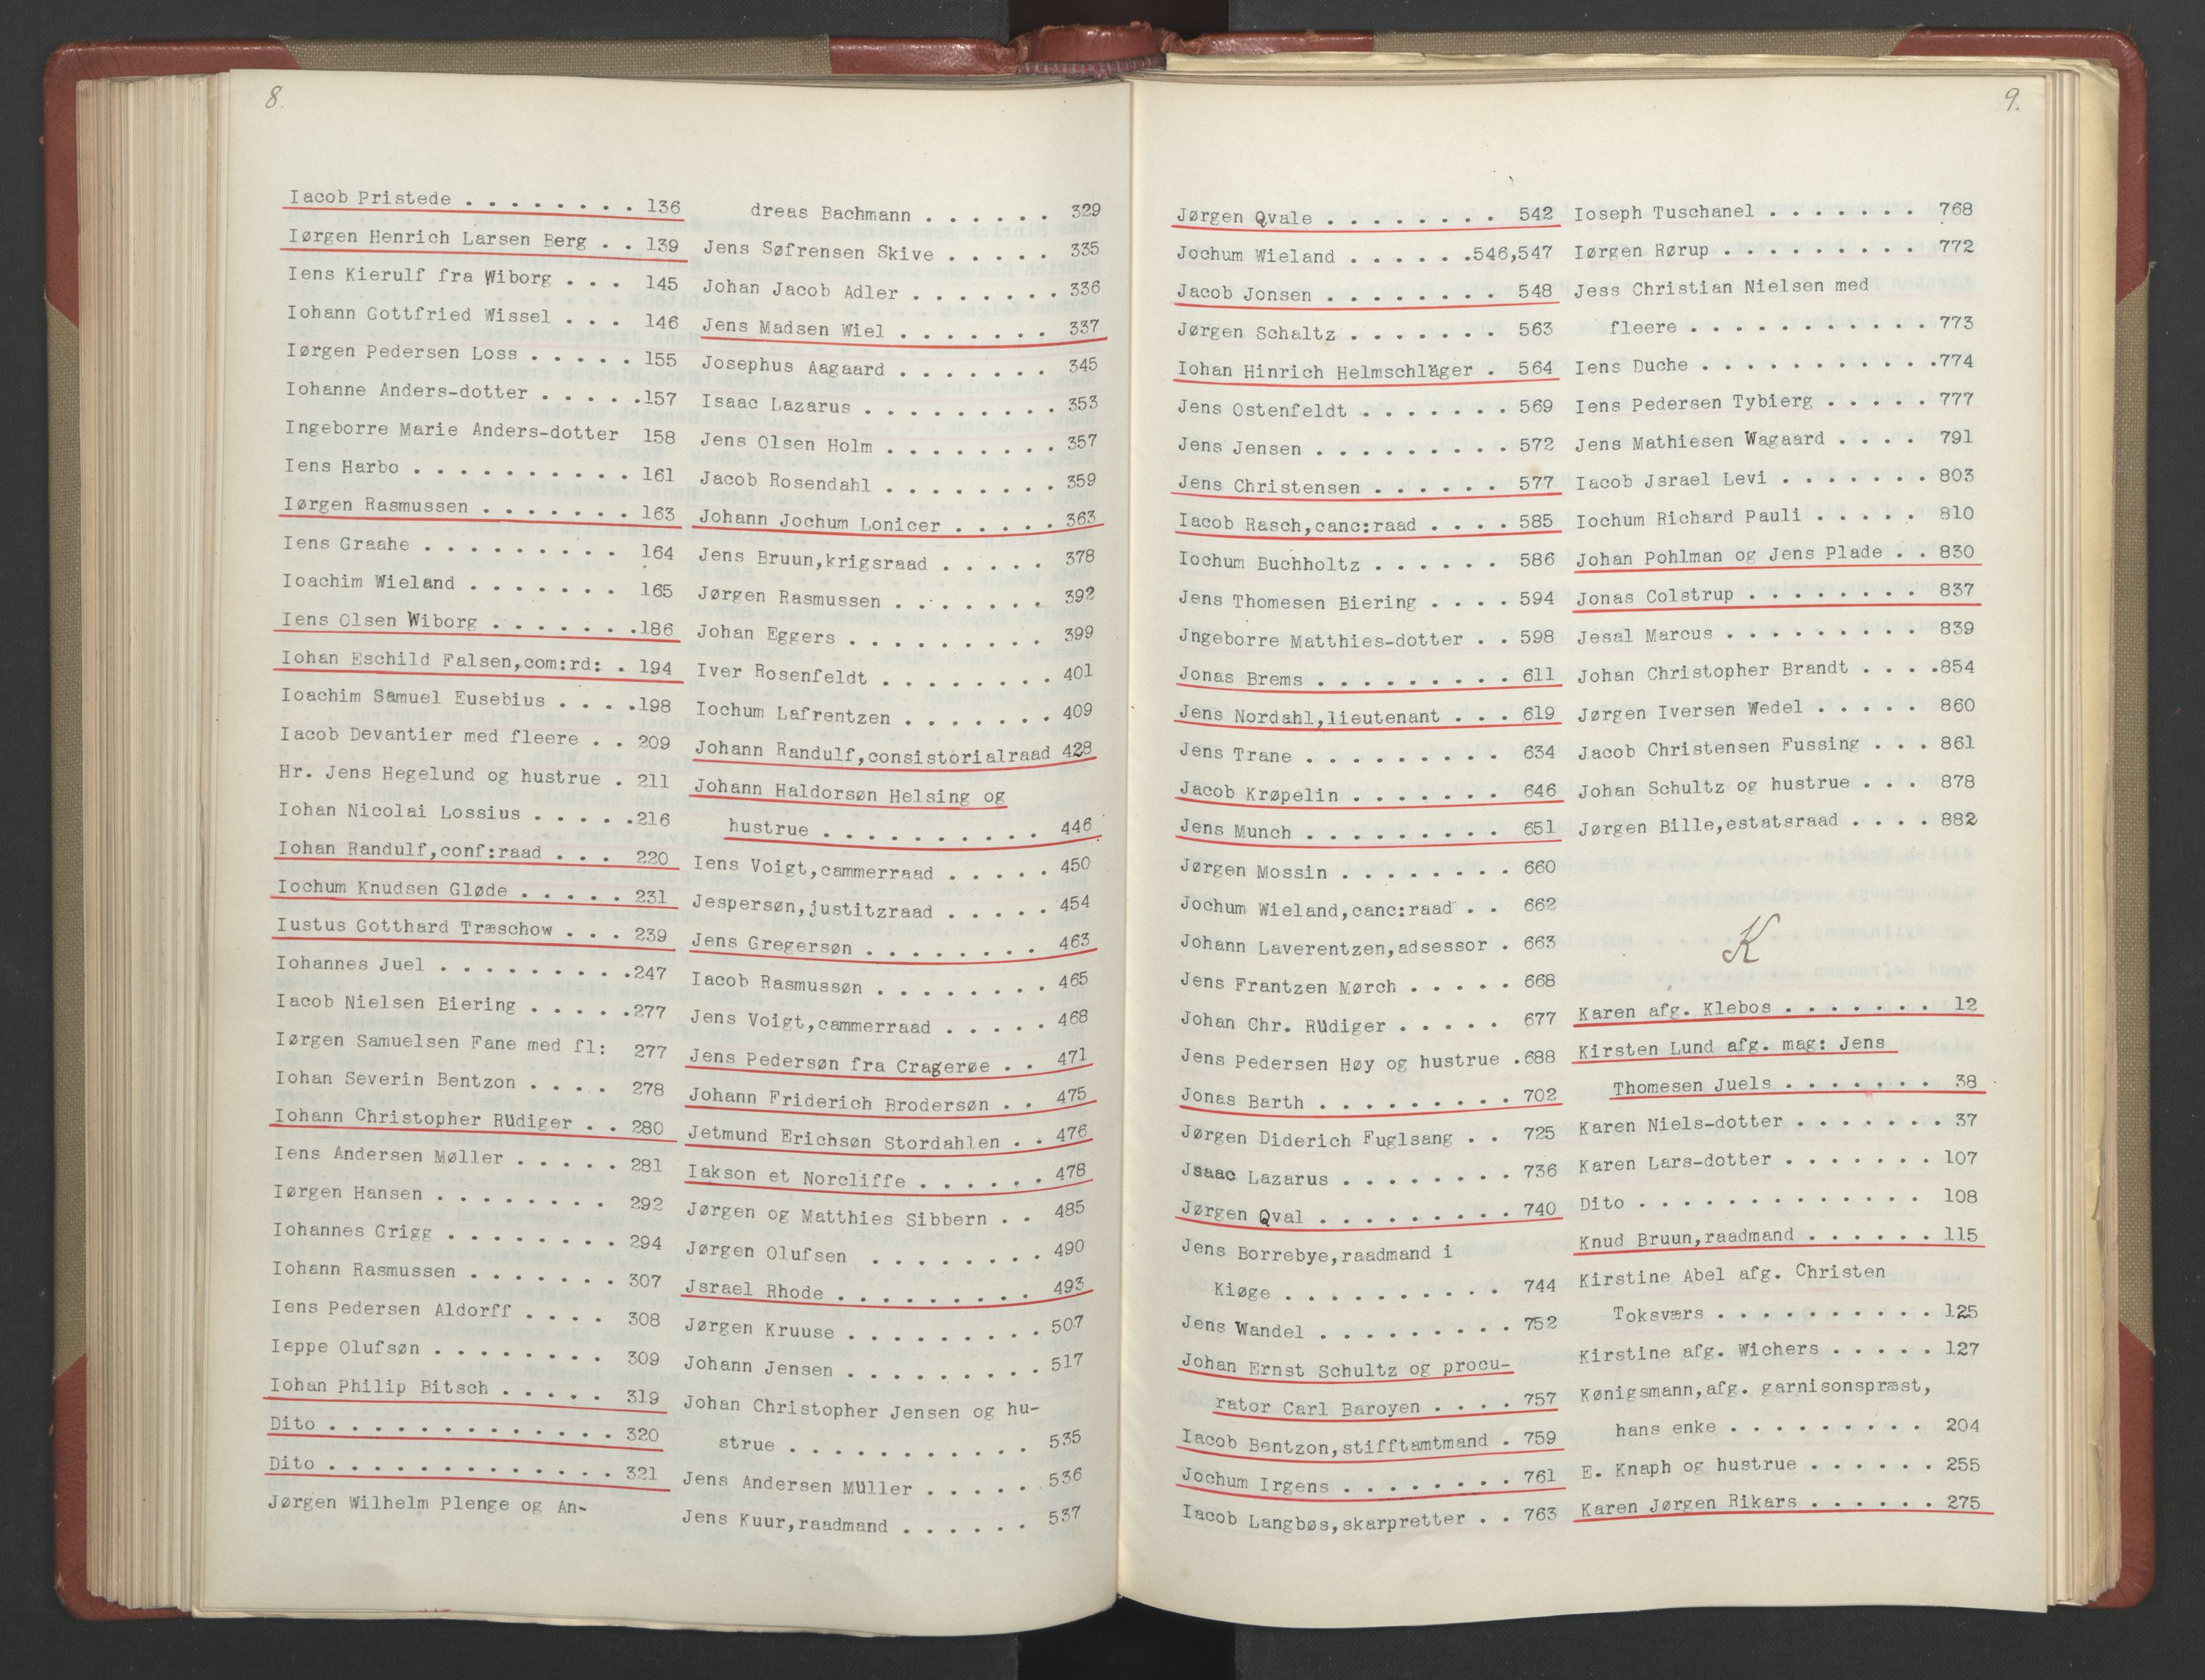 8.
Iacob Pristede . . . . . . . . 136
Iørgen Henrich Larsen Berg . . 139
Iens Kierulf fra Wiborg . . . 145
Iohann Gottfried Wissel . . . 146
Iørgen Pedersen Loss . . . . . 155
Iohanne Anders-dotter . . . . .157
Ingeborre Marie Anders-dotter 158
Iens Harbo . . . . . . . . . . 161
Iørgen Rasmussen . . . . . . . 163
Iens Graahe . . . . . . . . . 164
Ioachim Wieland . . . . . . . 165
Iens Olsen Wiborg . . . . . . .186
Iohan Eschild Falsen,com:rd: . 194
Ioachim Samuel Eusebius . . . .198
Iacob Devantier med fleere . . 209
Hr. Jens Hegelund og hustrue . 211
Iohan Nicolai Lossius . . . . .216
Iohan Randulf,conf:raad . . . 220
Iochum Knudsen Gløde . . . . . 231
Iustus Gotthard Træschow . . . 239
Iohannes Juel . . . . . . . . .247
Iacob Nielsen Biering . . . . .277
Iørgen Samuelsen Fane med fl: 277
Iohan Severin Bentzon . . . . 278
Iohann Christopher Rüdiger . . 280
Iens Andersen Møller . . . . . 281
Iørgen Hansen . . . . . . . . 292
Iohannes Grigg . . . . . . . . 294
Iohann Rasmussen . . . . . . . 307
Iens Pedersen Aldorff . . . . 308
Ieppe Olufsøn . . . . . . . . 309
Iohan Philip Bitsch . . . . . 319
Dito . . . . . . . . . . . . . 320
Dito . . . . . . . . . . . . . 321
Jørgen Wilhelm Plenge og An-
dreas Bachmann . . . . . . 329
Jens Søfrensen Skive . . . . . 335
Johan Jacob Adler . . . . . . . 336
Jens Madsen Wiel . . . . . . . 337
Josephus Aagaard . . . . . . . 345
Isaac Lazarus . . . . . . . . . 353
Jens Olsen Holm . . . . . . . . 357
Jacob Rosendahl . . . . . . . . 359
Johann Jochum Lonicer . . . . . 363
Jens Bruun,krigsraad . . . . . 378
Jørgen Rasmussen . . . . . . . 392
Johan Eggers . . . . . . . . . 399
Iver Rosenfeldt . . . . . . . . 401
Iochum Lafrentzen . . . . . . . 409
Johann Randulf,consistorialraad 428
Johann Haldorsøn Helsing og
hustrue . . . . . . . . . . 446
Iens Voigt,cammerraad . . . . . 450
Jespersøn,justitzraad . . . . . 454
Jens Gregersøn . . . . . . . . 463
Iacob Rasmussøn . . . . . . . . 465
Jens Voigt,cammerraad . . . . . 468
Jens Pedersøn fra Cragerøe . . 471
Johann Friderich Brodersøn . . 475
Jetmund Erichsøn Stordahlen . . 476
Iakson et Norcliffe . . . . . . 478
Jørgen og Matthies Sibbern . . 485
Jørgen Olufsen . . . . . . . . 490
Jsrael Rhode . . . . . . . . . 493
Jørgen Kruuse . . . . . . . . . 507
Johann Jensen . . . . . . . . . 517
Johan Christopher Jensen og hu-
strue . . . . . . . . . . . 535
Jens Andersen Müller . . . . . .536
Jens Kuur,raadmand . . . . . . 537
9.
Jørgen Qvale . . . . . . . . 542
Jochum Wieland . . . . . .546,547
Jacob Jonsen . . . . . . . . 548
Jørgen Schaltz . . . . . . . 563
Iohan Hinrich Helmschläger . 564
Jens Ostenfeldt . . . . . . . 569
Jens Jensen . . . . . . . . . 572
Jens Christensen . . . . . . 577
Iacob Rasch,canc:raad . . . . 585
Iochum Buchholtz . . . . . . 586
Jens Thomesen Biering . . . . 594
Jngeborre Matthies-dotter . . 598
Jonas Brems . . . . . . . . . 611
Jens Nordahl,lieutenant . . . 619
Jens Trane . . . . . . . . . 634
Jacob Krøpelin . . . . . . . 646
Jens Munch . . . . . . . . . 651
Jørgen Mossin . . . . . . . . 660
Jochum Wieland,canc:raad . . 662
Johann Laverentzen,adsessor . 663
Jens Frantzen Mørch . . . . . 668
Johan Chr. Rüdiger . . . . . 677
Jens Pedersen Høy og hustrue .688
Jonas Barth . . . . . . . . . 702
Jørgen Diderich Fuglsang . . 725
Jsaac Lazarus . . . . . . . . 736
Jørgen Qval . . . . . . . . . 740
Jens Borrebye,raadmand i
Kiøge . . . . . . . . . . 744
Jens Wandel . . . . . . . . . 752
Johan Ernst Schultz og procu-
rator Carl Baroyen . . . . 757
Iacob Bentzon,stifftamtmand . 759
Jochum Irgens . . . . . . . . 761
Iacob Langbøs,skarpretter . . 763
Ioseph Tuschanel . . . . . . . 768
Iørgen Rørup . . . . . . . . . 772
Jess Christian Nielsen med
fleere . . . . . . . . . . 773
Iens Duche . . . . . . . . . . .774
Iens Pedersen Tybierg . . . . . 777
Jens Mathiesen Wagaard . . . . 791
Iacob Jsrael Levi . . . . . . . 803
Iochum Richard Pauli . . . . . 810
Johan Pohlman og Jens Plade . . 830
Jonas Colstrup . . . . . . . . 837
Jesal Marcus . . . . . . . . . 839
Johan Christopher Brandt . . . .854
Jørgen Iversen Wedel . . . . . 860
Jacob Christensen Fussing . . . 861
Johan Schultz og hustrue . . . 878
Jørgen Bille,estatsraad . . . . 882
K
Karen afg. Klebos . . . . . . . 12
Kirsten Lund afg. mag: Jens
Thomesen Juels . . . . . . . 38
Karen Niels-dotter . . . . . . . 37
Karen Lars-dotter . . . . . . . 107
Dito . . . . . . . . . . . . . 108
Knud Bruun,raadmand . . . . . . 115
Kirstine Abel afg. Christen
Toksværs . . . . . . . . . . 125
Kirstine afg. Wichers . . . . . 127
Kønigsmann,afg. garnisonspræst,
hans enke . . . . . . . . . 204
E. Knaph og hustrue . . . . . . 255
Karen Jørgen Rikars . . . . . . 275